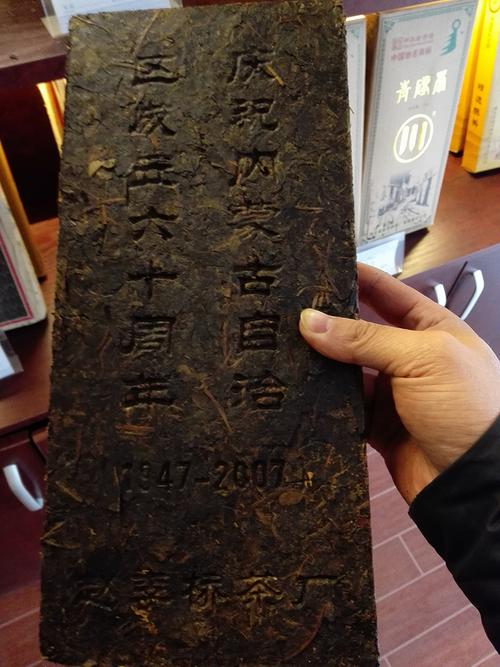 庆祝内蒙古自治
区成立六十周年
1947-2007
赵李桥茶厂
川